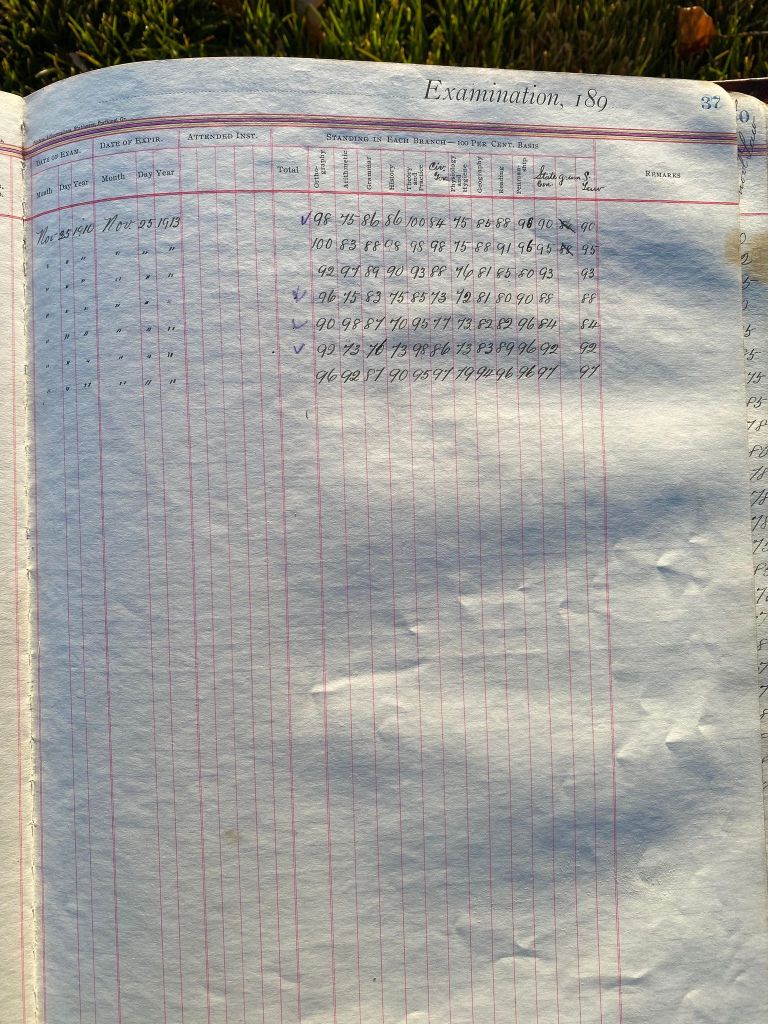 Examination, 189
37
DATE OF EXAM. DATE OF EXPIR. ATTENDED INST. STANDING IN EACH BRANCH—100 PER CENT. BASIS
Month Day Year Month Day Year Total Orthography Arithmetic Grammar History Theory and Practice Civ. Gov. Physiology and Hygiene Geography Reading Penmanship State Gov. S. Law REMARKS
Nov 25 1910 Nov 25 1913 √ 98 75 86 86 100 84 75 85 88 96 90 90
" " " " " " 100 83 88 98 98 98 75 88 91 96 95 95
" " " " " " 92 97 89 90 93 88 76 81 85 80 93 93
" " " " " " √ 96 75 83 75 85 73 72 81 80 90 88 88
" " " " " " √ 90 98 87 70 95 77 73 82 82 96 84 84
" " " " " " √ 92 73 76 73 98 86 73 83 89 96 92 92
" " " " " " 96 92 87 90 95 97 79 94 96 96 97 97